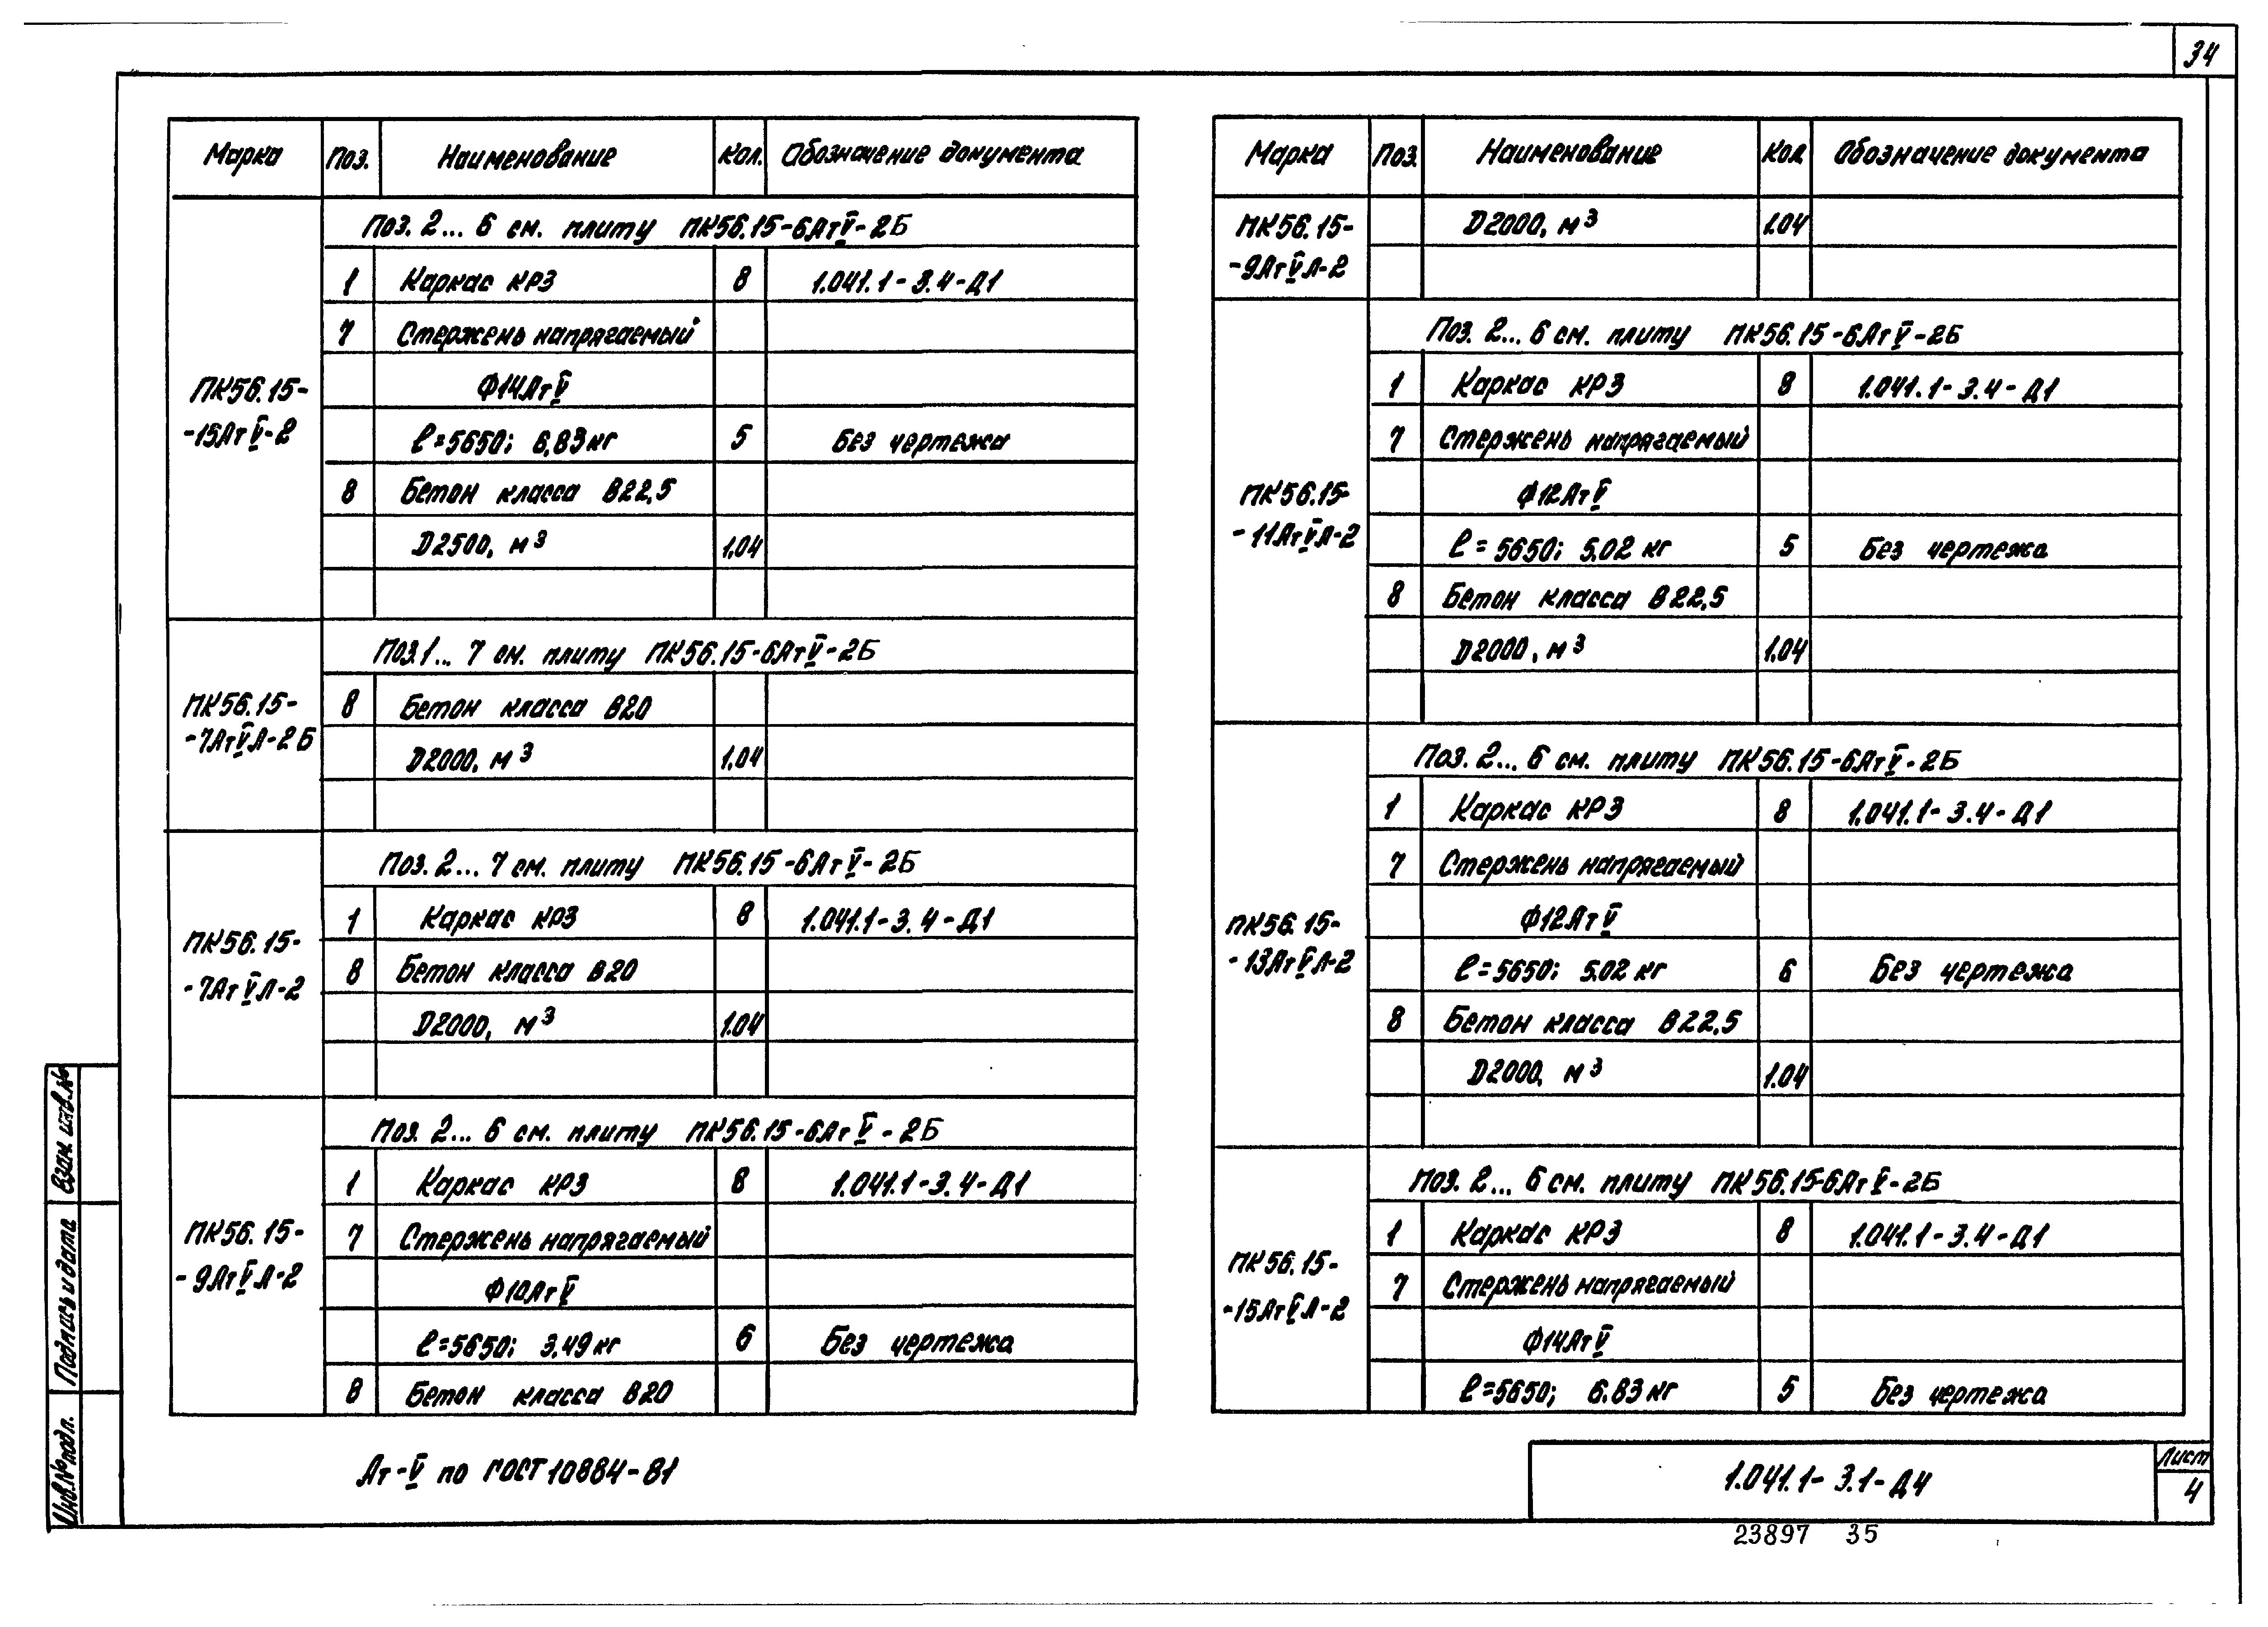 34
Марка Поз. Наименование Кол. Обозначение документа
Поз. 2... 6 см. плиту ПК56.15-6АтV-2Б
1 Каркас КР3 8 1.041.1-3.4-Д1
7 Стержень напрягаемый
Ф14АтV
ПК56.15-
-15АтV-2
ℓ=5650; 6,83кг 5 Без чертежа
8 Бетон класса В22,5
D2500, м3 1,04
Поз.1... 7 см. плиту ПК56.15-6АтV-2Б
ПК56.15-
-7АтVЛ-2Б
8 Бетон класса В20
D2000, м3 1,04
Поз. 2... 7 см. плиту ПК56.15-6АтV-2Б
1 Каркас КР3 8 1.041.1-3.4-Д1
ПК56.15-
-7АтVЛ-2
8 Бетон класса В20
D2000, м3 1.04
Поз. 2... 6 см. плиту ПК56.15-6АтV-2Б
1 Каркас КР3 8 1.041.1-3.4-Д1
ПК56.15-
-9АтVЛ-2
7 Стержень напрягаемый
Ф10АтV
ℓ=5650; 3.49кг 6 Без чертежа
8 Бетон класса В20
Марка Поз. Наименование Кол. Обозначение документа
ПК56.15-
-9АтVЛ-2
D2000, м3 1.04
Поз. 2... 6 см. плиту ПК56.15-6АтV-2Б
1 Каркас КР3 8 1.041.1-3.4-Д1
7 Стержень напрягаемый
ПК56.15-
-11АтVЛ-2
Ф12АтV
ℓ=5650; 5.02кг 5 Без чертежа
8 Бетон класса В22,5
D2000, м3 1,04
Поз. 2... 6 см. плиту ПК56.15-6АтV-2Б
1 Каркас КР3 8 1.041.1-3.4-Д1
7 Стержень напрягаемый
ПК56.15-
-13АтVЛ-2
Ф12АтV
ℓ=5650; 5.02кг 6 Без чертежа
8 Бетон класса В22,5
D2000, м3 1.04
Поз. 2... 6 см. плиту ПК56.15-6АтV-2Б
1 Каркас КР3 8 1.041.1-3.4-Д1
ПК56.15-
-15АтVЛ-2
7 Стержень напрягаемый
Ф14АтV
ℓ=5650; 6.83кг 5 Без чертежа
Ат-V по ГОСТ10884-81
1.041.1-3.1-Д4
Лист
4
23897 35
Взам. инв.№
Подпись и дата
Инв.№подл.